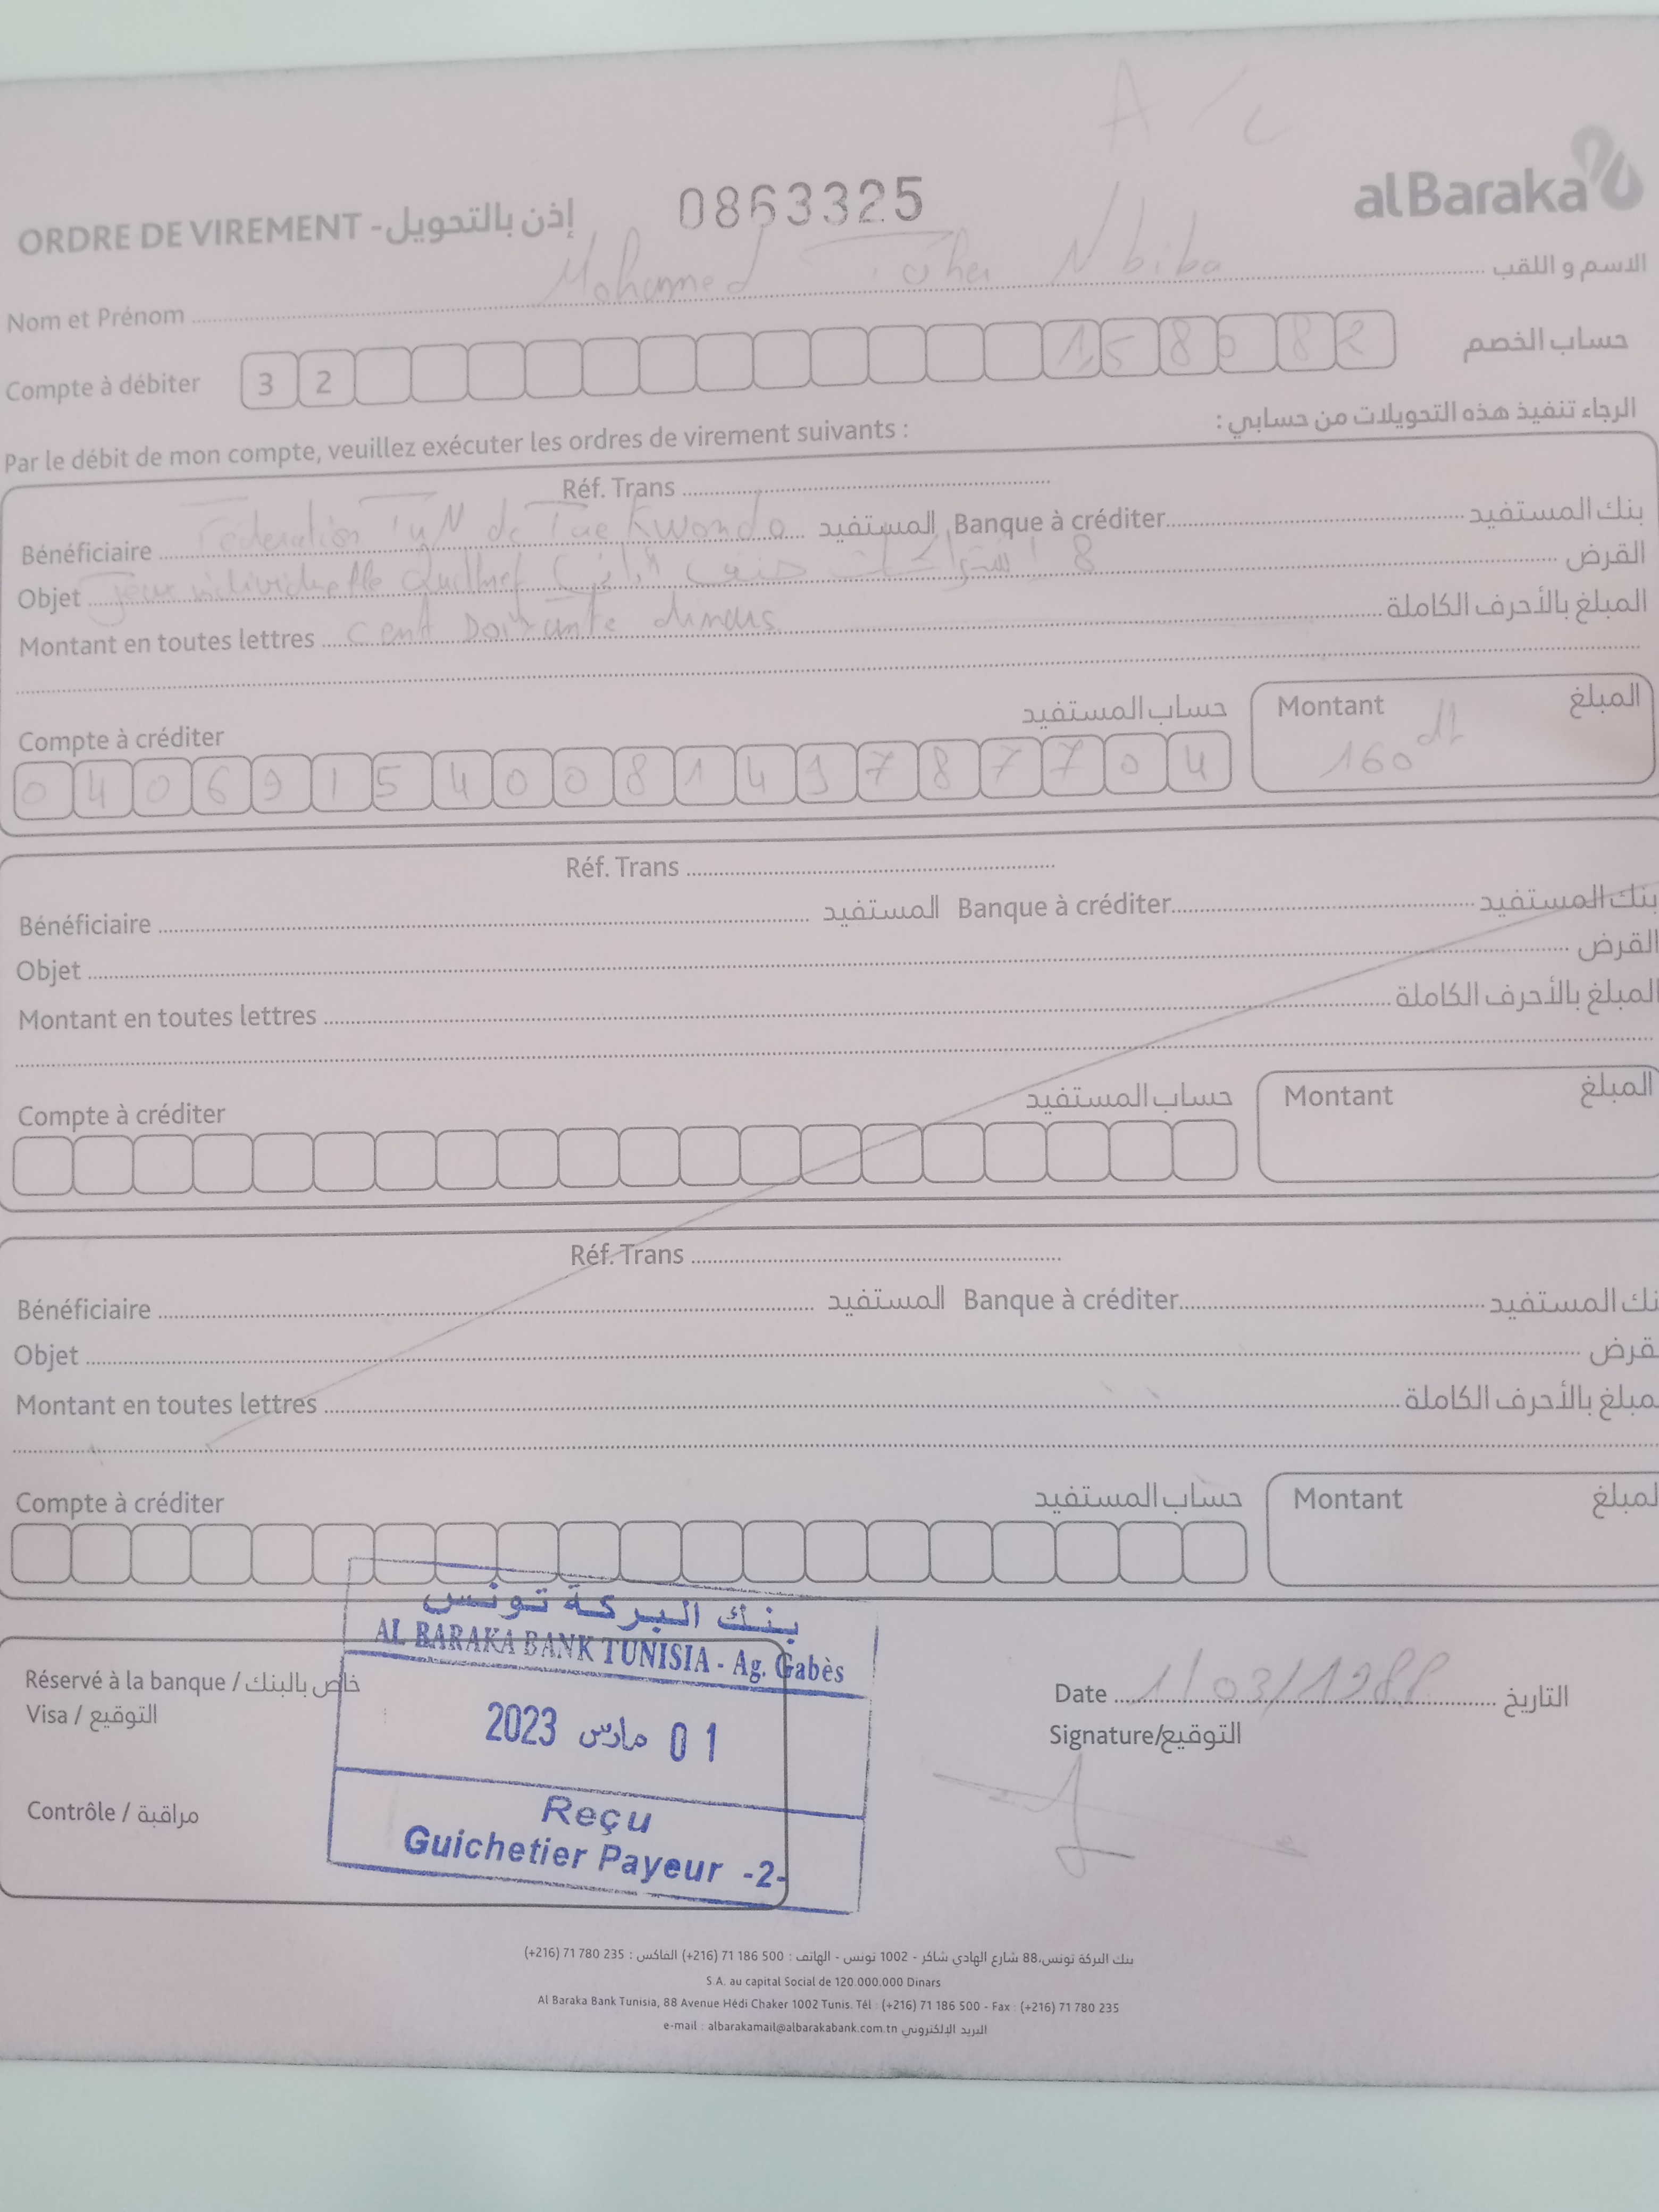 A/c
ORDRE DE VIREMENT - إذن بالتحويل 0863325 al Baraka
Nom et Prénom Mohamed Taher Nbiba الاسم و اللقب
Compte à débiter 3 2 1 5 8 0 8 2 حساب الخصم
Par le débit de mon compte, veuillez exécuter les ordres de virement suivants : الرجاء تنفيذ هذه التحويلات من حسابي :
Réf. Trans
Bénéficiaire Féderation TuN de TaeKwondo المستفيد Banque à créditer بنك المستفيد
Objet individuelle 8 القرض
Montant en toutes lettres cent soixante dinars المبلغ بالأحرف الكاملة
Compte à créditer حساب المستفيد Montant المبلغ
0 4 0 6 9 1 5 4 0 0 8 1 4 9 7 8 7 7 0 4 160 dt
Réf. Trans
Bénéficiaire المستفيد Banque à créditer بنك المستفيد
Objet القرض
Montant en toutes lettres المبلغ بالأحرف الكاملة
Compte à créditer حساب المستفيد Montant المبلغ
Réf. Trans
Bénéficiaire المستفيد Banque à créditer نك المستفيد
Objet قرض
Montant en toutes lettres مبلغ بالأحرف الكاملة
Compte à créditer حساب المستفيد Montant لمبلغ
بنك البركة تونس
AL BARAKA BANK TUNISIA - Ag. Gabès
Réservé à la banque / خاص بالبنك
Visa / التوقيع
01 مارس 2023
Contrôle / مراقبة
Reçu
Guichetier Payeur -2-
Date 1/03/1988 التاريخ
Signature/التوقيع
بنك البركة تونس،88 شارع الهادي شاكر - 1002 تونس - الهاتف : 500 186 71 (216+) الفاكس : 235 780 71 (216+)
S.A. au capital Social de 120.000.000 Dinars
Al Baraka Bank Tunisia, 88 Avenue Hédi Chaker 1002 Tunis. Tél : (+216) 71 186 500 - Fax : (+216) 71 780 235
e-mail : albarakamail@albarakabank.com.tn البريد الإلكتروني